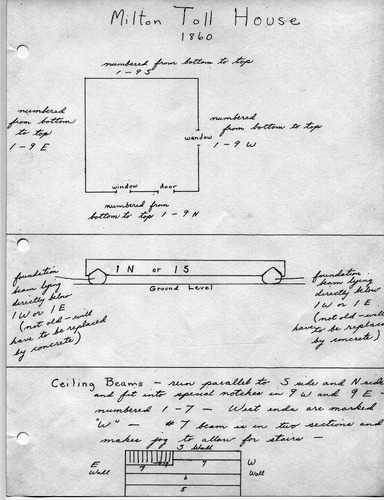 Milton Toll House
1860
numbered from bottom to top
1-9 S
numbered
from bottom
to top
1-9 E
numbered
from bottom to top
1-9 W
window
window door
numbered from
bottom to top 1-9 N
1 N or 1 S
Ground Level
foundation
beam lying
directly below
1 W or 1 E
(not old - will
have to be replaced
by concrete)
foundation
beam lying
directly below
1 W or 1 E
(not old - will
have to be replaced
by concrete)
Ceiling Beams - run parallel to S side and N side
and fit into special notches in 9 W and 9 E -
numbered 1-7 - West ends are marked
"W" - #7 beam is in two sections and
makes jog to allow for stairs -
S Wall
E
Wall
7
7
W
Wall
6
5